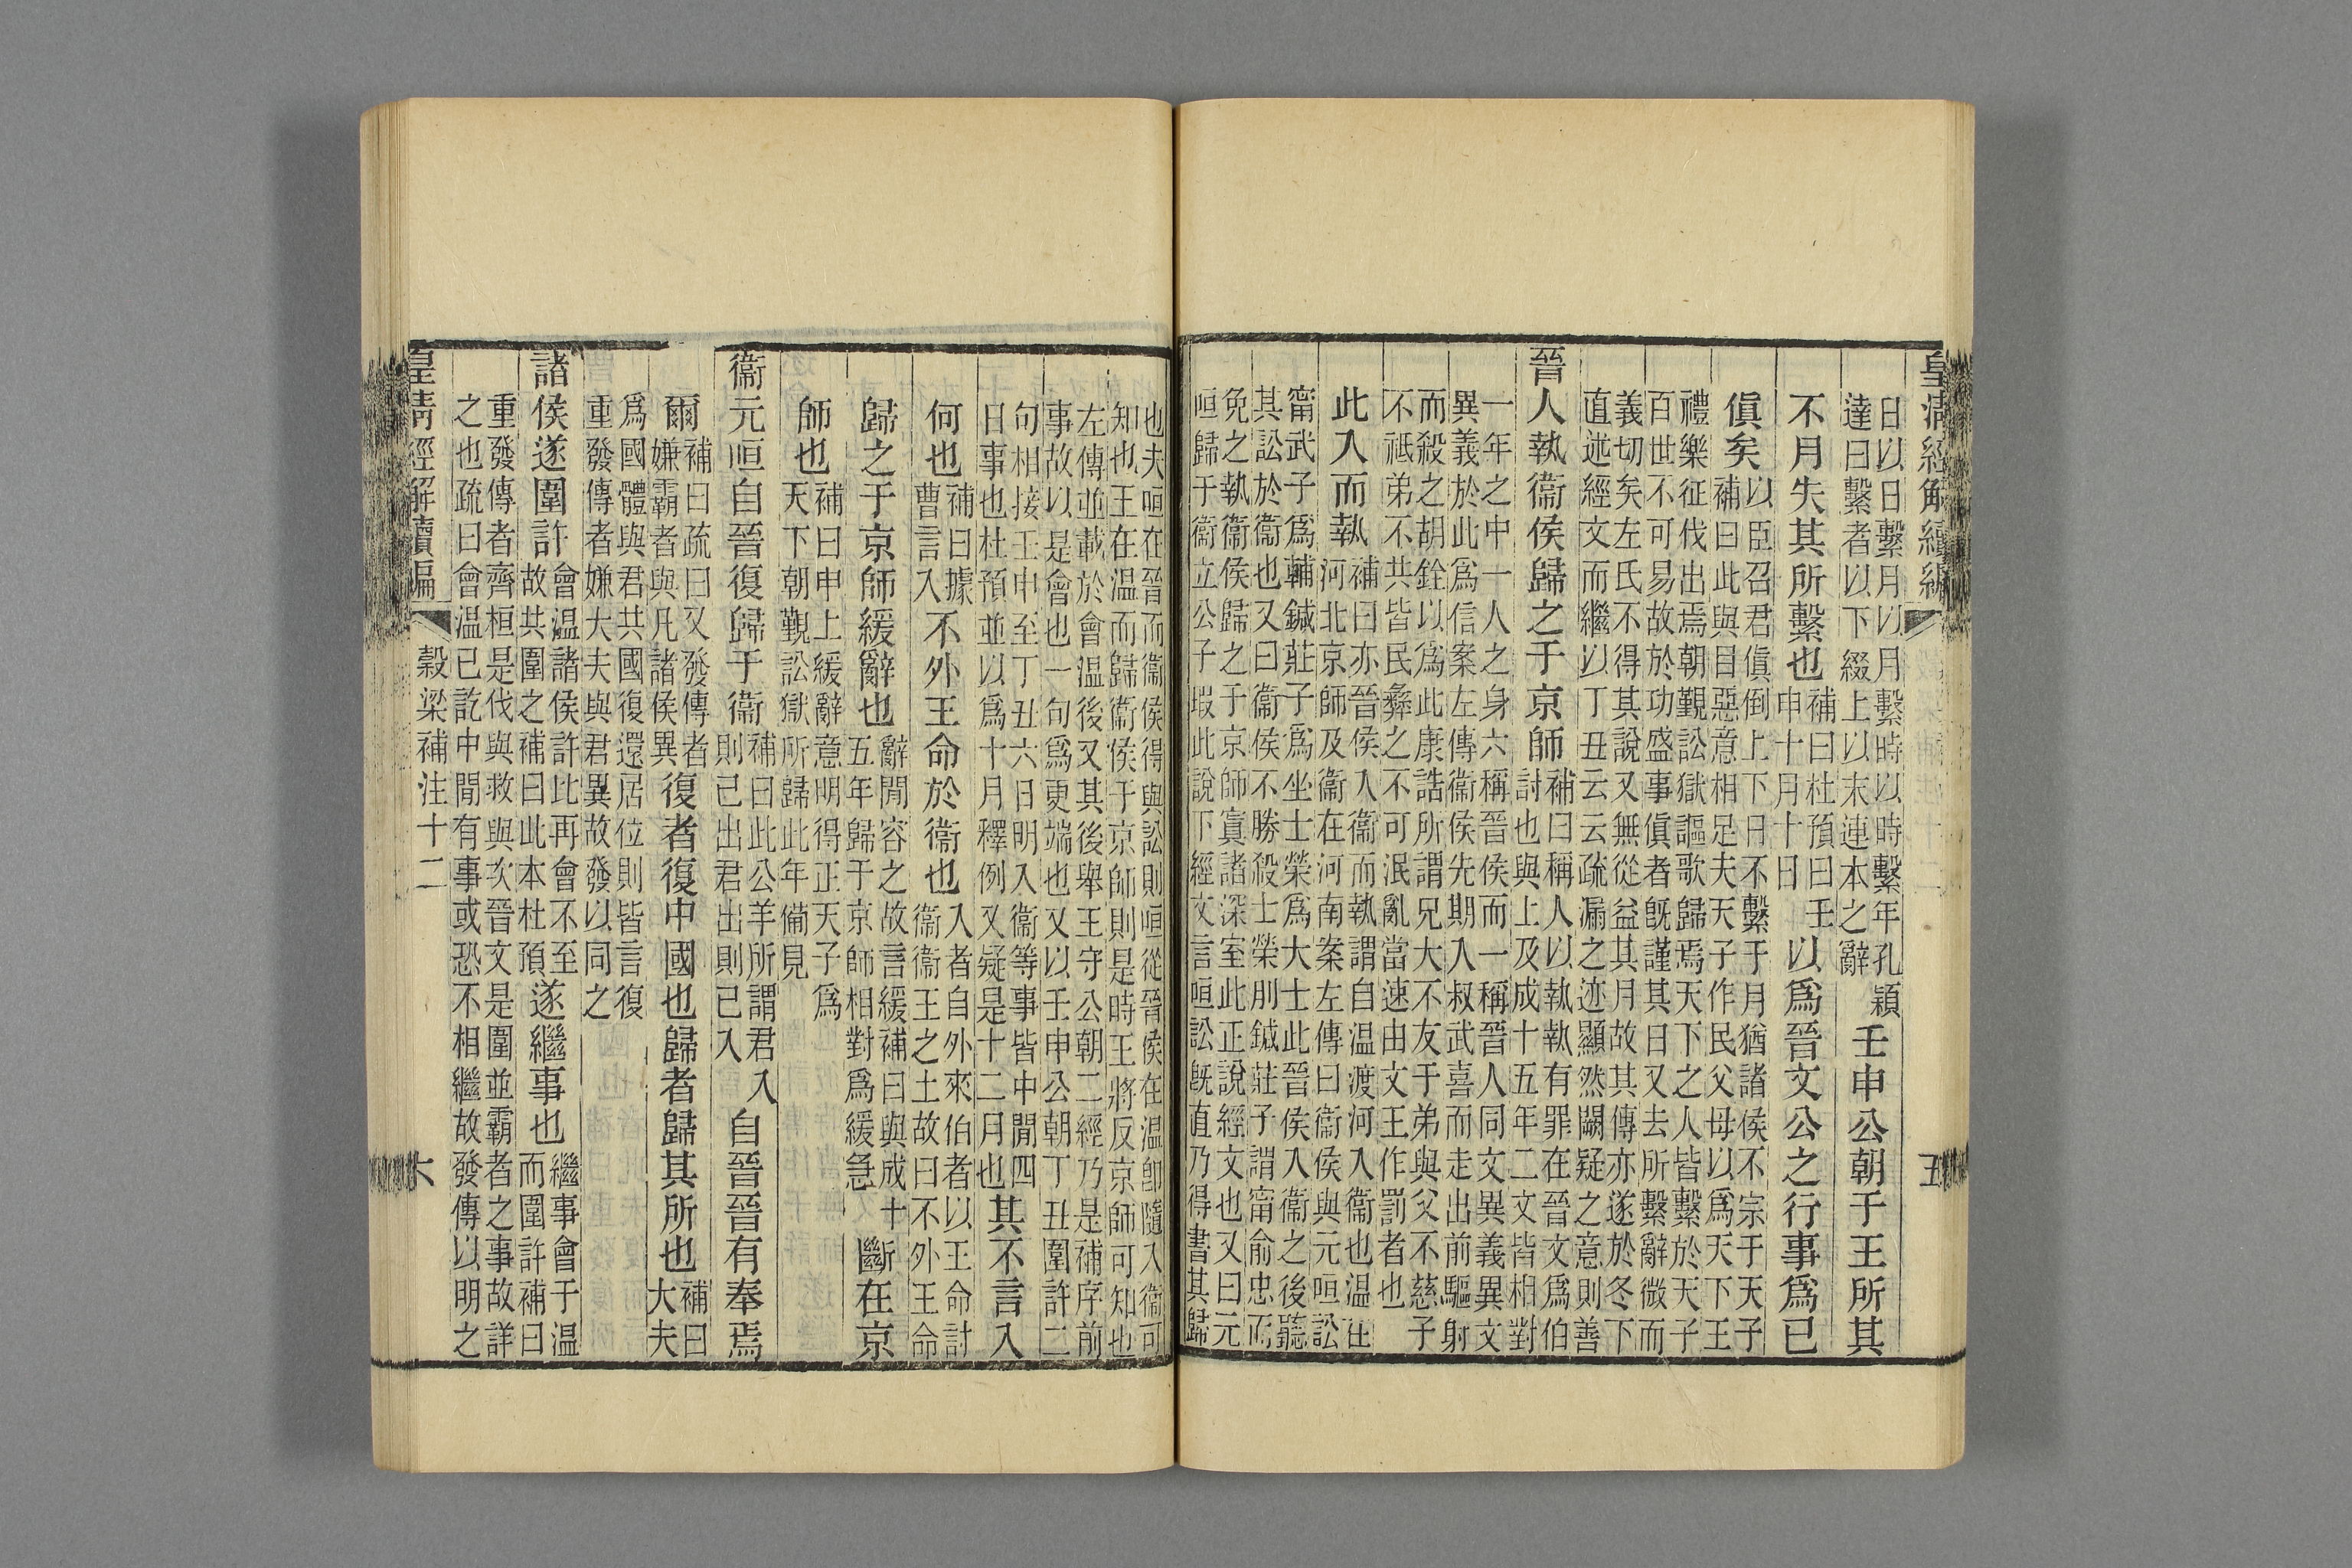 皇清經解續編 五
日以日繫月以月繫時以時繫年孔穎
達曰繫者以下綴上以末連本之辭
壬申公朝于王所其
不月失其所繫也
補曰杜預曰壬
申十月十日
以爲晉文公之行事爲已
傎矣
以臣召君傎倒上下日不繫于月猶諸侯不宗于天子
補曰此與目惡意相足夫天子作民父母以爲天下王
禮樂征伐出焉朝覲訟獄謳歌歸焉天下之人皆繫於天子
百世不可易故於功盛事傎者旣謹其日又去所繫辭微而
義切矣左氏不得其說又無從益其月故其傳亦遂於冬下
直述經文而繼以丁丑云云疏漏之迹顯然闕疑之意則善
晉人執衞侯歸之于京師
補曰稱人以執執有罪在晉文爲伯
討也與上及成十五年二文皆相對
一年之中一人之身六稱晉侯而一稱晉人同文異義異文
異義於此爲信案左傳衞侯先期入叔武喜而走出前驅射
而殺之胡銓以爲此康誥所謂兄大不友于弟與父不慈子
不祗弟不共皆民彝之不可泯亂當速由文王作罰者也
此入而執
補曰亦晉侯入衞而執謂自温渡河入衞也温在
河北京師及衞在河南案左傳曰衞侯與元咺訟
甯武子爲輔鍼莊子爲坐士榮爲大士此晉侯入衞之後聽
其訟於衞也又曰衞侯不勝殺士榮刖鍼莊子謂甯俞忠而
免之執衞侯歸之于京師寘諸深室此正說經文也又曰元
咺歸于衞立公子瑕此說下經文言咺訟旣直乃得書其歸
也夫咺在晉而衞侯得與訟則咺從晉侯在温卽隨入衞可
知也王在温而歸衞侯于京師則是時王將反京師可知也
左傳並載於會温後又其後舉王守公朝二經乃是補序前
事故以是會也一句爲更端也又以壬申公朝丁丑圍許二
句相接壬申至丁丑六日明入衞等事皆中閒四
日事也杜預並以爲十月釋例又疑是十二月也
其不言入
何也
補曰據
曹言入
不外王命於衞也
入者自外來伯者以王命討
衞衞王之土故曰不外王命
歸之于京師緩辭也
辭閒容之故言緩補曰與成十
五年歸于京師相對爲緩急
斷在京
師也
補曰申上緩辭意明得正天子爲
天下朝覲訟獄所歸此年備見
衞元咺自晉復歸于衞
補曰此公羊所謂君入
則已出君出則已入
自晉晉有奉焉
爾
補曰疏曰又發傳者
嫌霸者與凡諸侯異
復者復中國也歸者歸其所也
補曰
大夫
爲國體與君共國復還居位則皆言復
重發傳者嫌大夫與君異故發以同之
諸侯遂圍許
會温諸侯許比再會不至
故共圍之補曰此本杜預
遂繼事也
繼事會于温
而圍許補曰
重發傳者齊桓是伐與救與次晉文是圍並霸者之事故詳
之也疏曰會温已訖中閒有事或恐不相繼故發傳以明之
皇清經解續編 穀梁補注十二 六